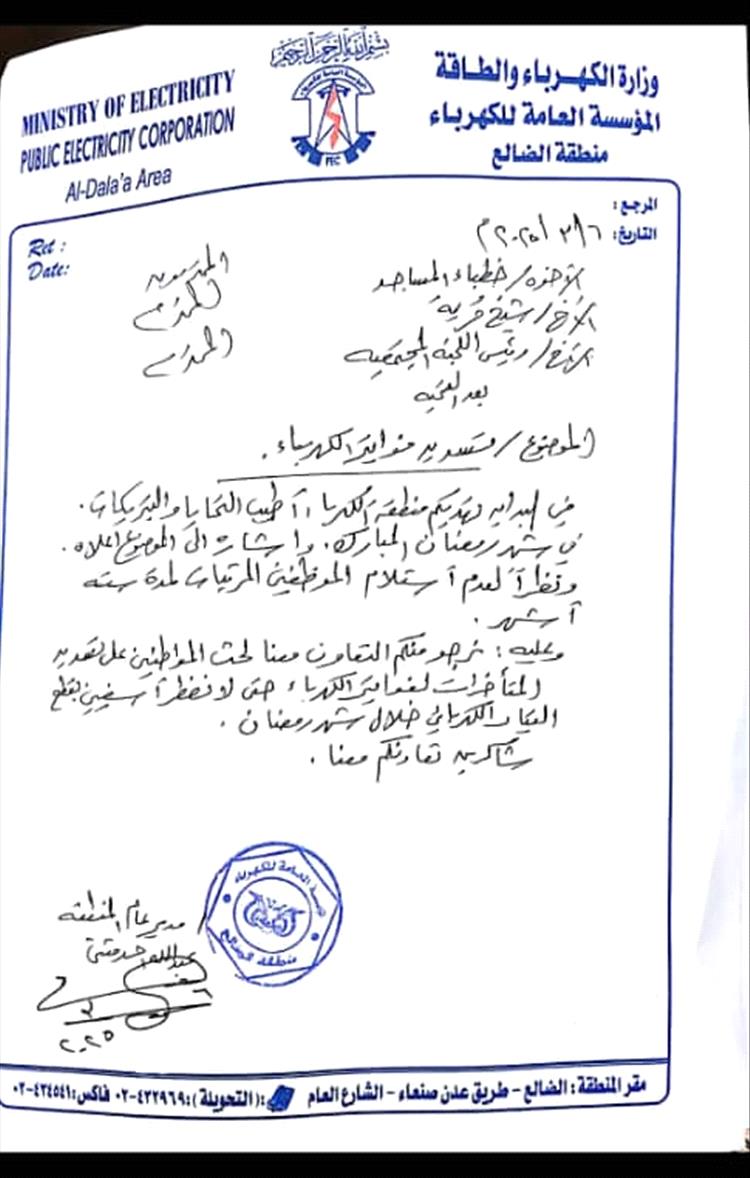 بسم الله الرحمن الرحيم
وزارة الكهرباء والطاقة
المؤسسة العامة للكهرباء
منطقة الضالع
MINISTRY OF ELECTRICITY
PUBLIC ELECTRICITY CORPORATION
Al-Dala'a Area
PEC
المرجع :
التاريخ : ٦/٣/٢٠٢٥م
Ref :
Date:
الأخوة/ خطباء المساجد المحترمون
الأخ/ شيخ قرية المحترم
الأخ/ رئيس اللجنة المجتمعيه المحترم
بعد التحيه
الموضوع/ تسديد فواتير الكهرباء .
في البدايه تهديكم منطقة الكهرباء أطيب التحايا والتبريكات .
في شهر رمضان المبارك . وإشاره الى الموضوع اعلاه .
ونظراً لعدم استلام الموظفين المرتبات لمدة سته
أشهر .
وعليه : نرجو منكم التعاون معنا لحث المواطنين على تسديد
المتأخرات لفواتير الكهرباء حتى لا نضطر آسفين بقطع
التيار الكهربائي خلال شهر رمضان .
شاكرين تعاونكم معنا .
مدير عام المنطقه
المؤسسة العامة للكهرباء
منطقة الضالع
٢٠٢٥
مقر المنطقة : الضالع - طريق عدن صنعاء - الشارع العام : (التحويلة) : ٤٣٢٩٦٩-٠٢ فاكس: ٤٣٤٥٤١-٠٢